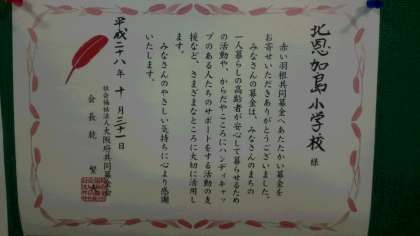 北恩加島小学校 様
赤い羽根共同募金へあたたかい募金を
お寄せいただきありがとうございました。
みなさんの募金は、みなさんのまちの
一人暮らしの高齢者が安心して暮らせるため
の活動や、からだやこころにハンディキャッ
プのある人たちのサポートをする活動の支
援など、さまざまなところに大切に活用し
ます。
みなさんのやさしい気持ちに心より感謝
いたします。
平成二十八年 十月 三十一日
社会福祉法人大阪府共同募金会
会長 乾 繁夫